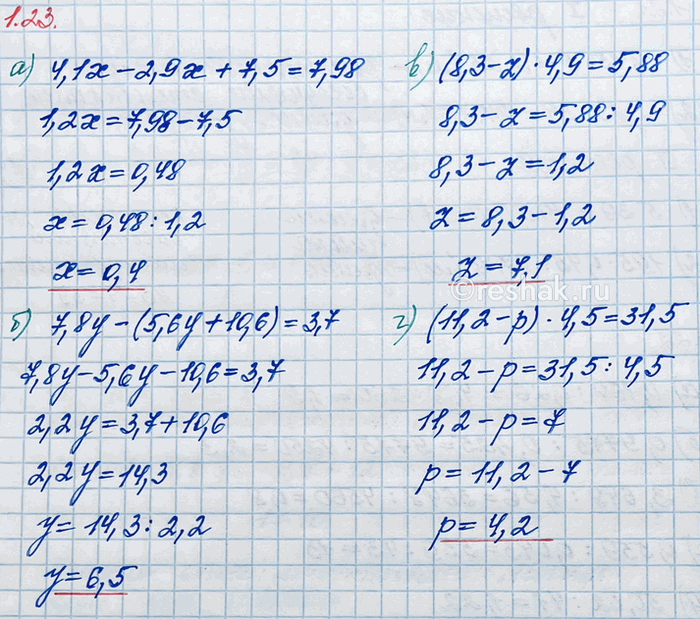 1.23.
а) 4,1x − 2,9x + 7,5 = 7,98
1,2x = 7,98 − 7,5
1,2x = 0,48
x = 0,48 : 1,2
x = 0,4
б) 7,8y − (5,6y + 10,6) = 3,7
7,8y − 5,6y − 10,6 = 3,7
2,2y = 3,7 + 10,6
2,2y = 14,3
y = 14,3 : 2,2
y = 6,5
в) (8,3 − z) · 4,9 = 5,88
8,3 − z = 5,88 : 4,9
8,3 − z = 1,2
z = 8,3 − 1,2
z = 7,1
©reshak.ru
г) (11,2 − p) · 4,5 = 31,5
11,2 − p = 31,5 : 4,5
11,2 − p = 7
p = 11,2 − 7
p = 4,2